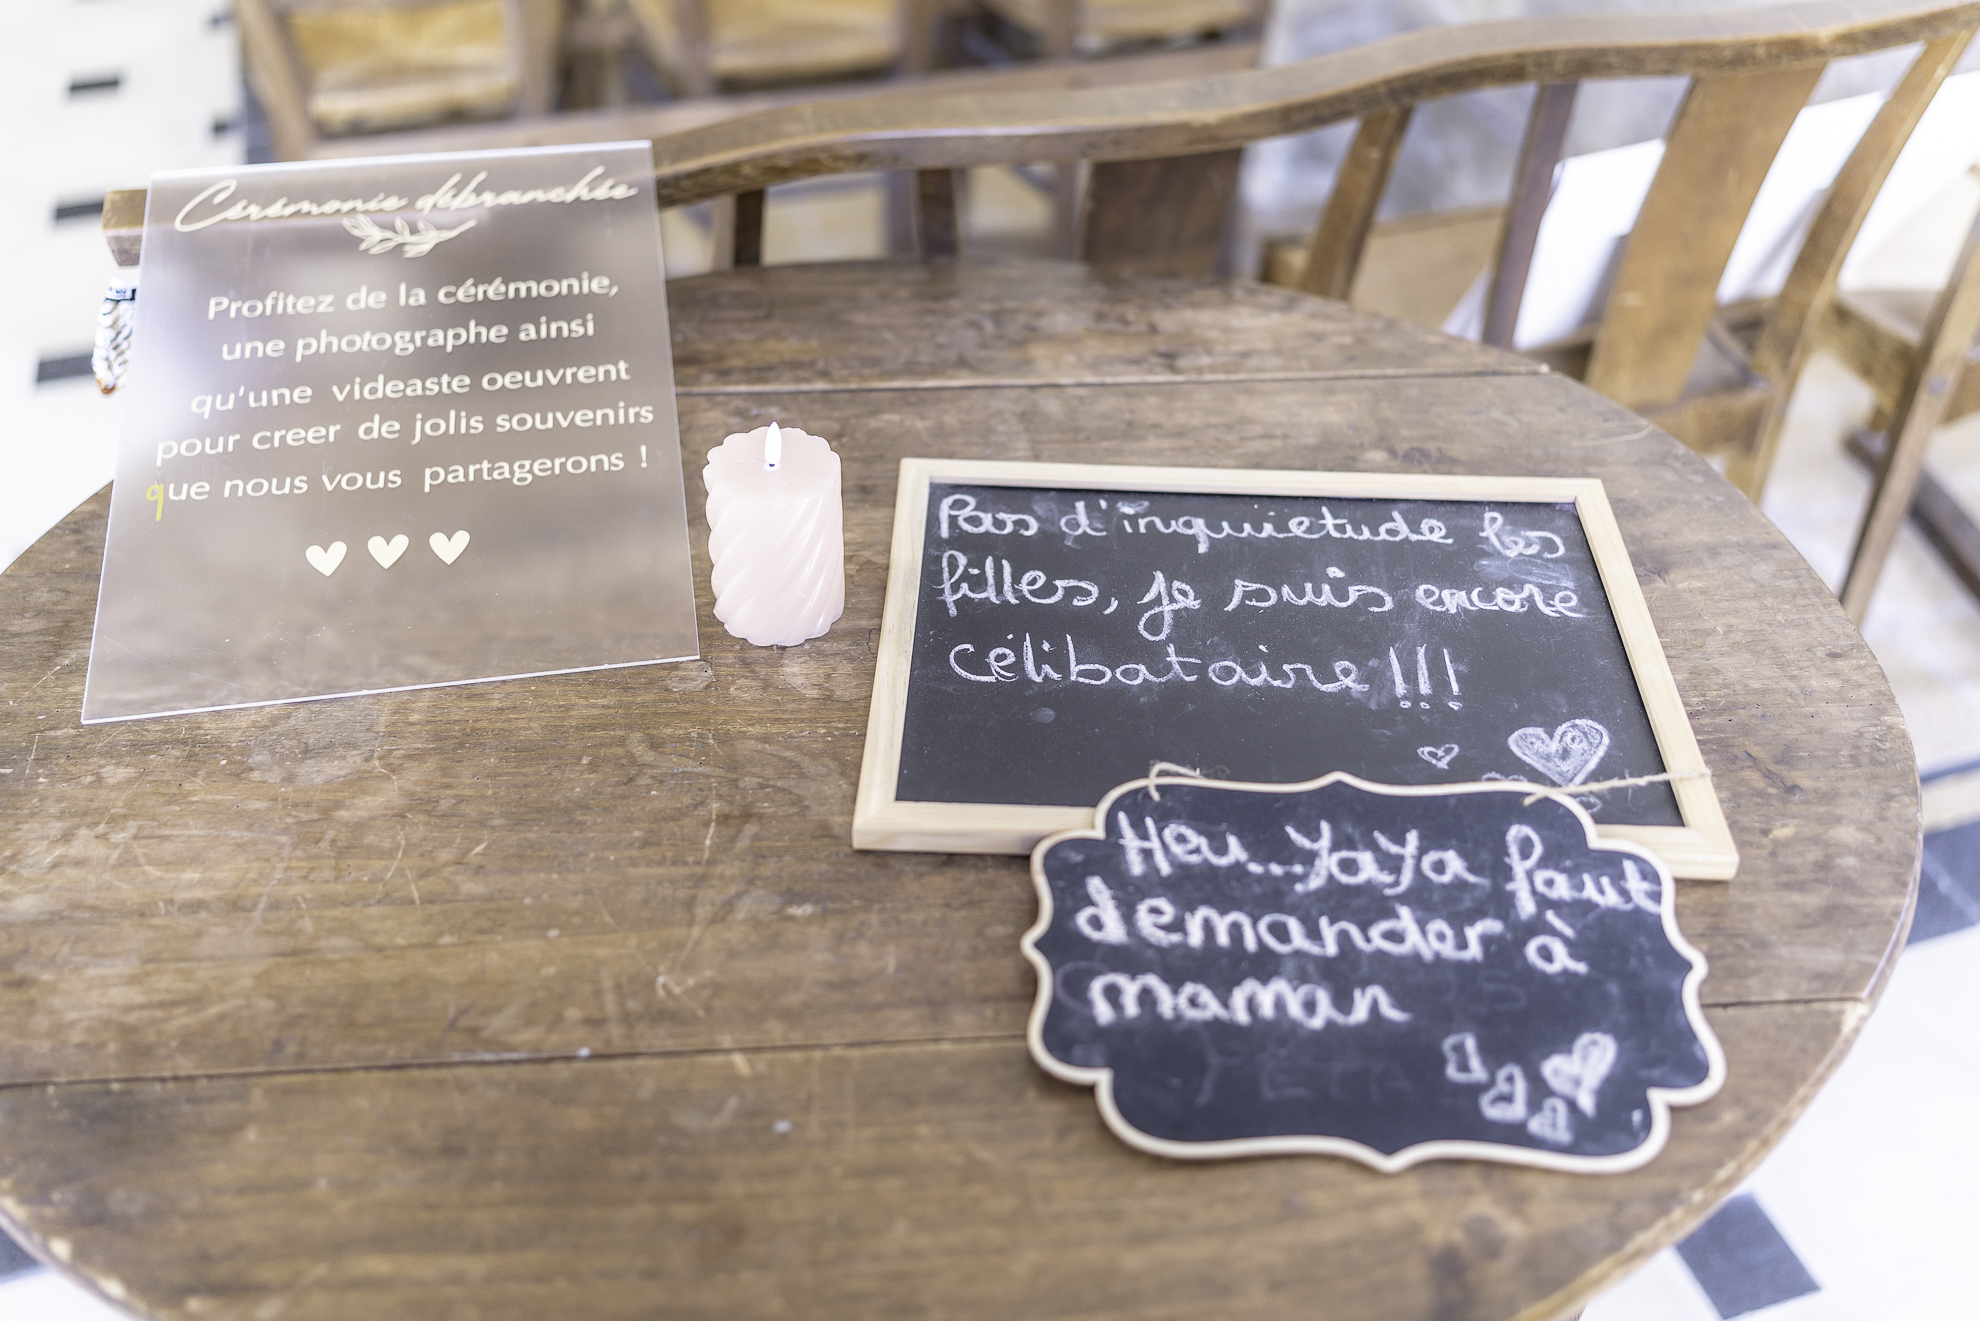 Cérémonie débranchée
Profitez de la cérémonie,
une photographe ainsi
qu'une videaste oeuvrent
pour creer de jolis souvenirs
que nous vous partagerons !
Pas d'inquietude les
filles, je suis encore
célibataire !!!
Heu...YaYa faut
demander à
maman